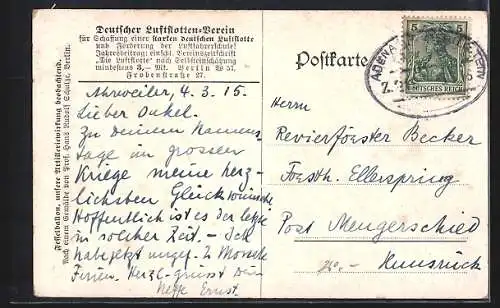 Deutscher Luftflotten-Verein
für Schaffung einer starken deutschen Luftflotte
und Förderung der Luftfahrerschule!
Jahresbeitrag einschl. Vereinszeitschrift
"Die Luftflotte" nach Selbsteinschätzung
mindestens 3,- Mk. Berlin W 51,
Frobenstraße 27.
Fesselballon, unsere Artilleriewirkung beobachtend.
Nach einem Gemälde von Prof. Hans Rudolf Schulze, Berlin.
Ahrweiler, 4.3.15.
Lieber Onkel.
Zu deinem Namens-
tage im grossen
Kriege meine herz-
lichsten Glückwünsche
Hoffentlich ist es der letzte
in solcher Zeit - Ich
habe jetzt ungef. 2 Monate
Ferien. Herzl. grüsst Dein
Neffe Ernst.
Postkarte
5 5
DEUTSCHES REICH
ADENA
Herrn
Revierförster Becker
Forsth. Ellerspring
Post Mengerschied
Hunsrück
20.-